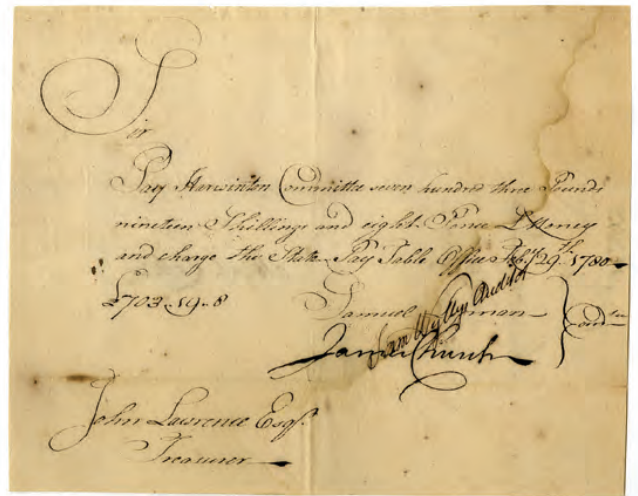 Sir
Pay Harwinton Committee seven hundred three Pounds
nineteen Shillings and eight Pence L Money
and charge the State Pay Table Office Feby 29th 1780
£703.19.8
Samuel Lyman
Sam Wyllys Auditor
James Church
Comtee
John Lawrence Esqr.
Treasurer